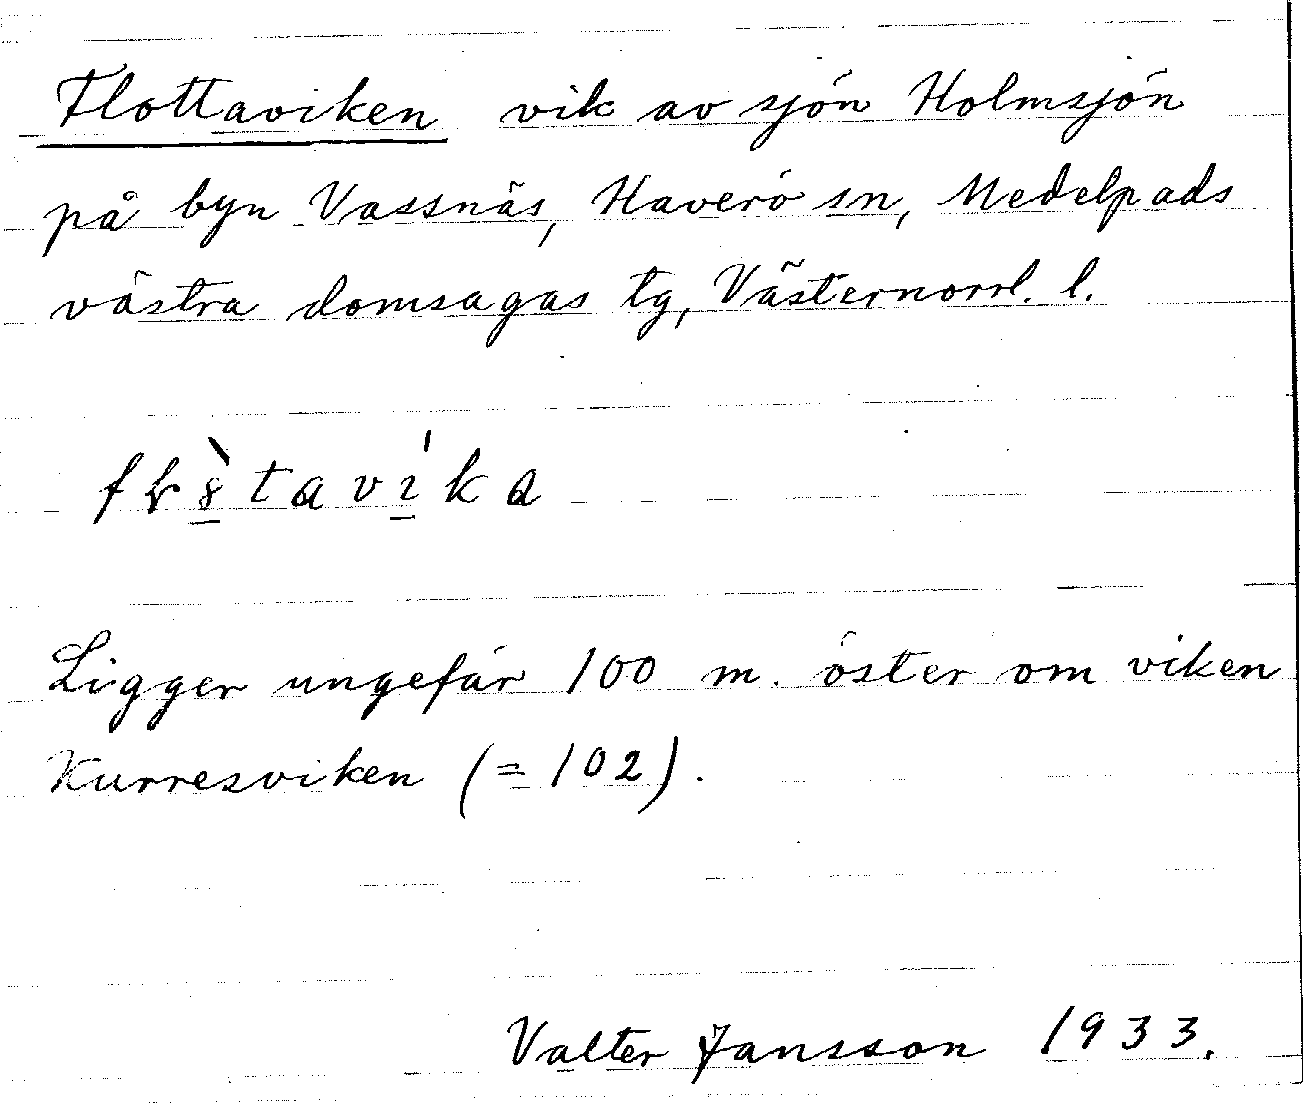 Flottaviken vik av sjön Holmsjön
på byn Vassnäs, Haverö sn, Medelpads
västra domsagas tg, Västernorrl. l.
Ligger ungefär 100 m. öster om viken
Kurresviken (= 102).
Valter Jansson 1933.